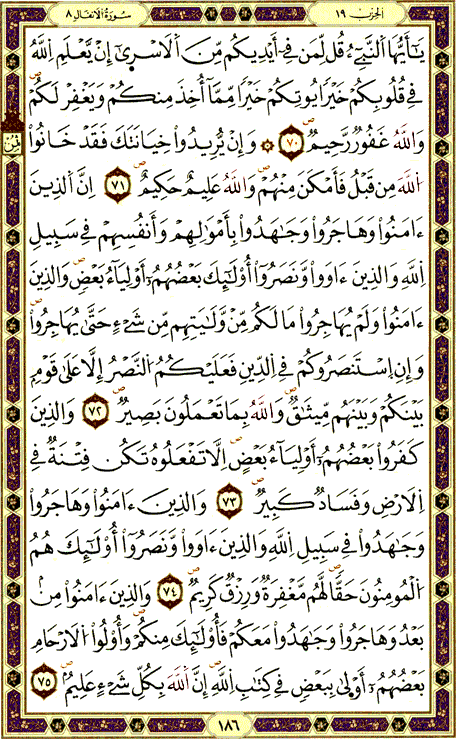 الحزب ١٩
سورة الانفال ٨
يَٰٓأَيُّهَا اَ۬لنَّبِيٓءُ قُل لِّمَن فِےٓ أَيْدِيكُم مِّنَ اَ۬لَاسْر۪يٰٓ إِنْ يَّعْلَمِ اِ۬للَّهُ
فِے قُلُوبِكُمْ خَيْراٗ يُوتِكُمْ خَيْراٗ مِّمَّآ أُخِذَ مِنكُمْ وَيَغْفِرْ لَكُمْۖ
وَاللَّهُ غَفُورٞ رَّحِيمٞۖ ٧٠ ۞ وَإِنْ يُّرِيدُواْ خِيَانَتَكَ فَقَدْ خَانُواْ
ثمن
اُ۬للَّهَ مِن قَبْلُ فَأَمْكَنَ مِنْهُمْۖ وَاللَّهُ عَلِيمٌ حَكِيمٌۖ ٧١ اِنَّ اَ۬لذِينَ
ءَامَنُواْ وَهَاجَرُواْ وَجَٰهَدُواْ بِأَمْوَٰلِهِمْ وَأَنفُسِهِمْ فِے سَبِيلِ
اِ۬للَّهِ وَالذِينَ ءَاوَواْ وَّنَصَرُوٓاْ أُوْلَٰٓئِكَ بَعْضُهُمُۥٓ أَوْلِيَآءُ بَعْضٖۖ وَالذِينَ
ءَامَنُواْ وَلَمْ يُهَاجِرُواْ مَا لَكُم مِّنْ وَّلَٰيَتِهِم مِّن شَےْءٍ حَتَّيٰ يُهَاجِرُواْۖ
وَإِنِ اِ۪سْتَنصَرُوكُمْ فِے اِ۬لدِّينِ فَعَلَيْكُمُ اُ۬لنَّصْرُ إِلَّا عَلَيٰ قَوْمِۢ
بَيْنَكُمْ وَبَيْنَهُم مِّيثَٰقٞۖ وَاللَّهُ بِمَا تَعْمَلُونَ بَصِيرٞۖ ٧٢ وَالذِينَ
كَفَرُواْ بَعْضُهُمُۥٓ أَوْلِيَآءُ بَعْضٍۖ اِلَّا تَفْعَلُوهُ تَكُن فِتْنَةٞ فِے
اِ۬لَارْضِ وَفَسَادٞ كَبِيرٞۖ ٧٣ وَالذِينَ ءَامَنُواْ وَهَاجَرُواْ
وَجَٰهَدُواْ فِے سَبِيلِ اِ۬للَّهِ وَالذِينَ ءَاوَواْ وَّنَصَرُوٓاْ أُوْلَٰٓئِكَ هُمُ
اُ۬لْمُومِنُونَ حَقّاٗ لَّهُم مَّغْفِرَةٞ وَرِزْقٞ كَرِيمٞۖ ٧٤ وَالذِينَ ءَامَنُواْ مِنۢ
بَعْدُ وَهَاجَرُواْ وَجَٰهَدُواْ مَعَكُمْ فَأُوْلَٰٓئِكَ مِنكُمْۖ وَأُوْلُواْ اُ۬لَارْحَامِ
بَعْضُهُمُۥٓ أَوْل۪يٰ بِبَعْضٖ فِے كِتَٰبِ اِ۬للَّهِۖ إِنَّ اَ۬للَّهَ بِكُلِّ شَےْءٍ عَلِيمٞۖ ٧٥
١٨٦